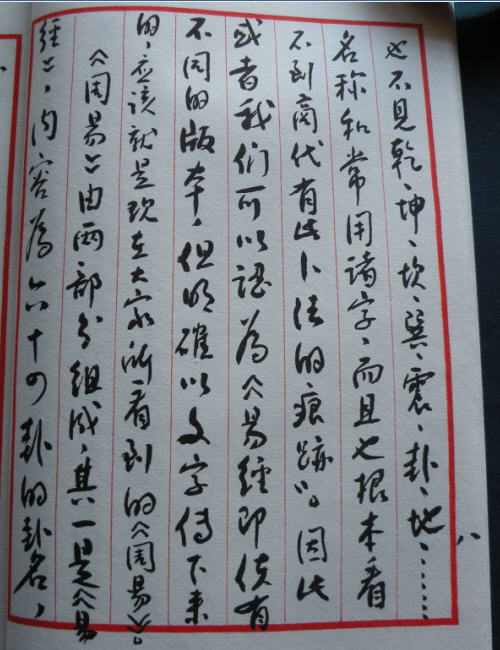 也不見乾、坤、坎、巽、震、卦、地、……
名称和常用諸字，而且也根本看
不到商代有此卜法的痕跡”。因此
或者我们可以認為《易經即使有
不同的版本，但明確以文字傳下来
的，應該就是现在大家所看到的《周易》。
《周易》由两部分组成，其一是《易
經》，内容為六十四卦的卦名，
八